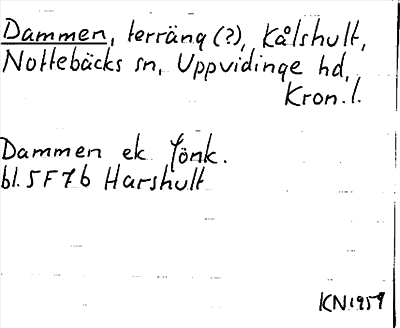 Dammen, terräng (?), Kålshult,
Nottebäcks sn, Uppvidinge hd,
Kron. l.
Dammen ek. Jönk.
bl. 5F7b Harshult
KN 1959